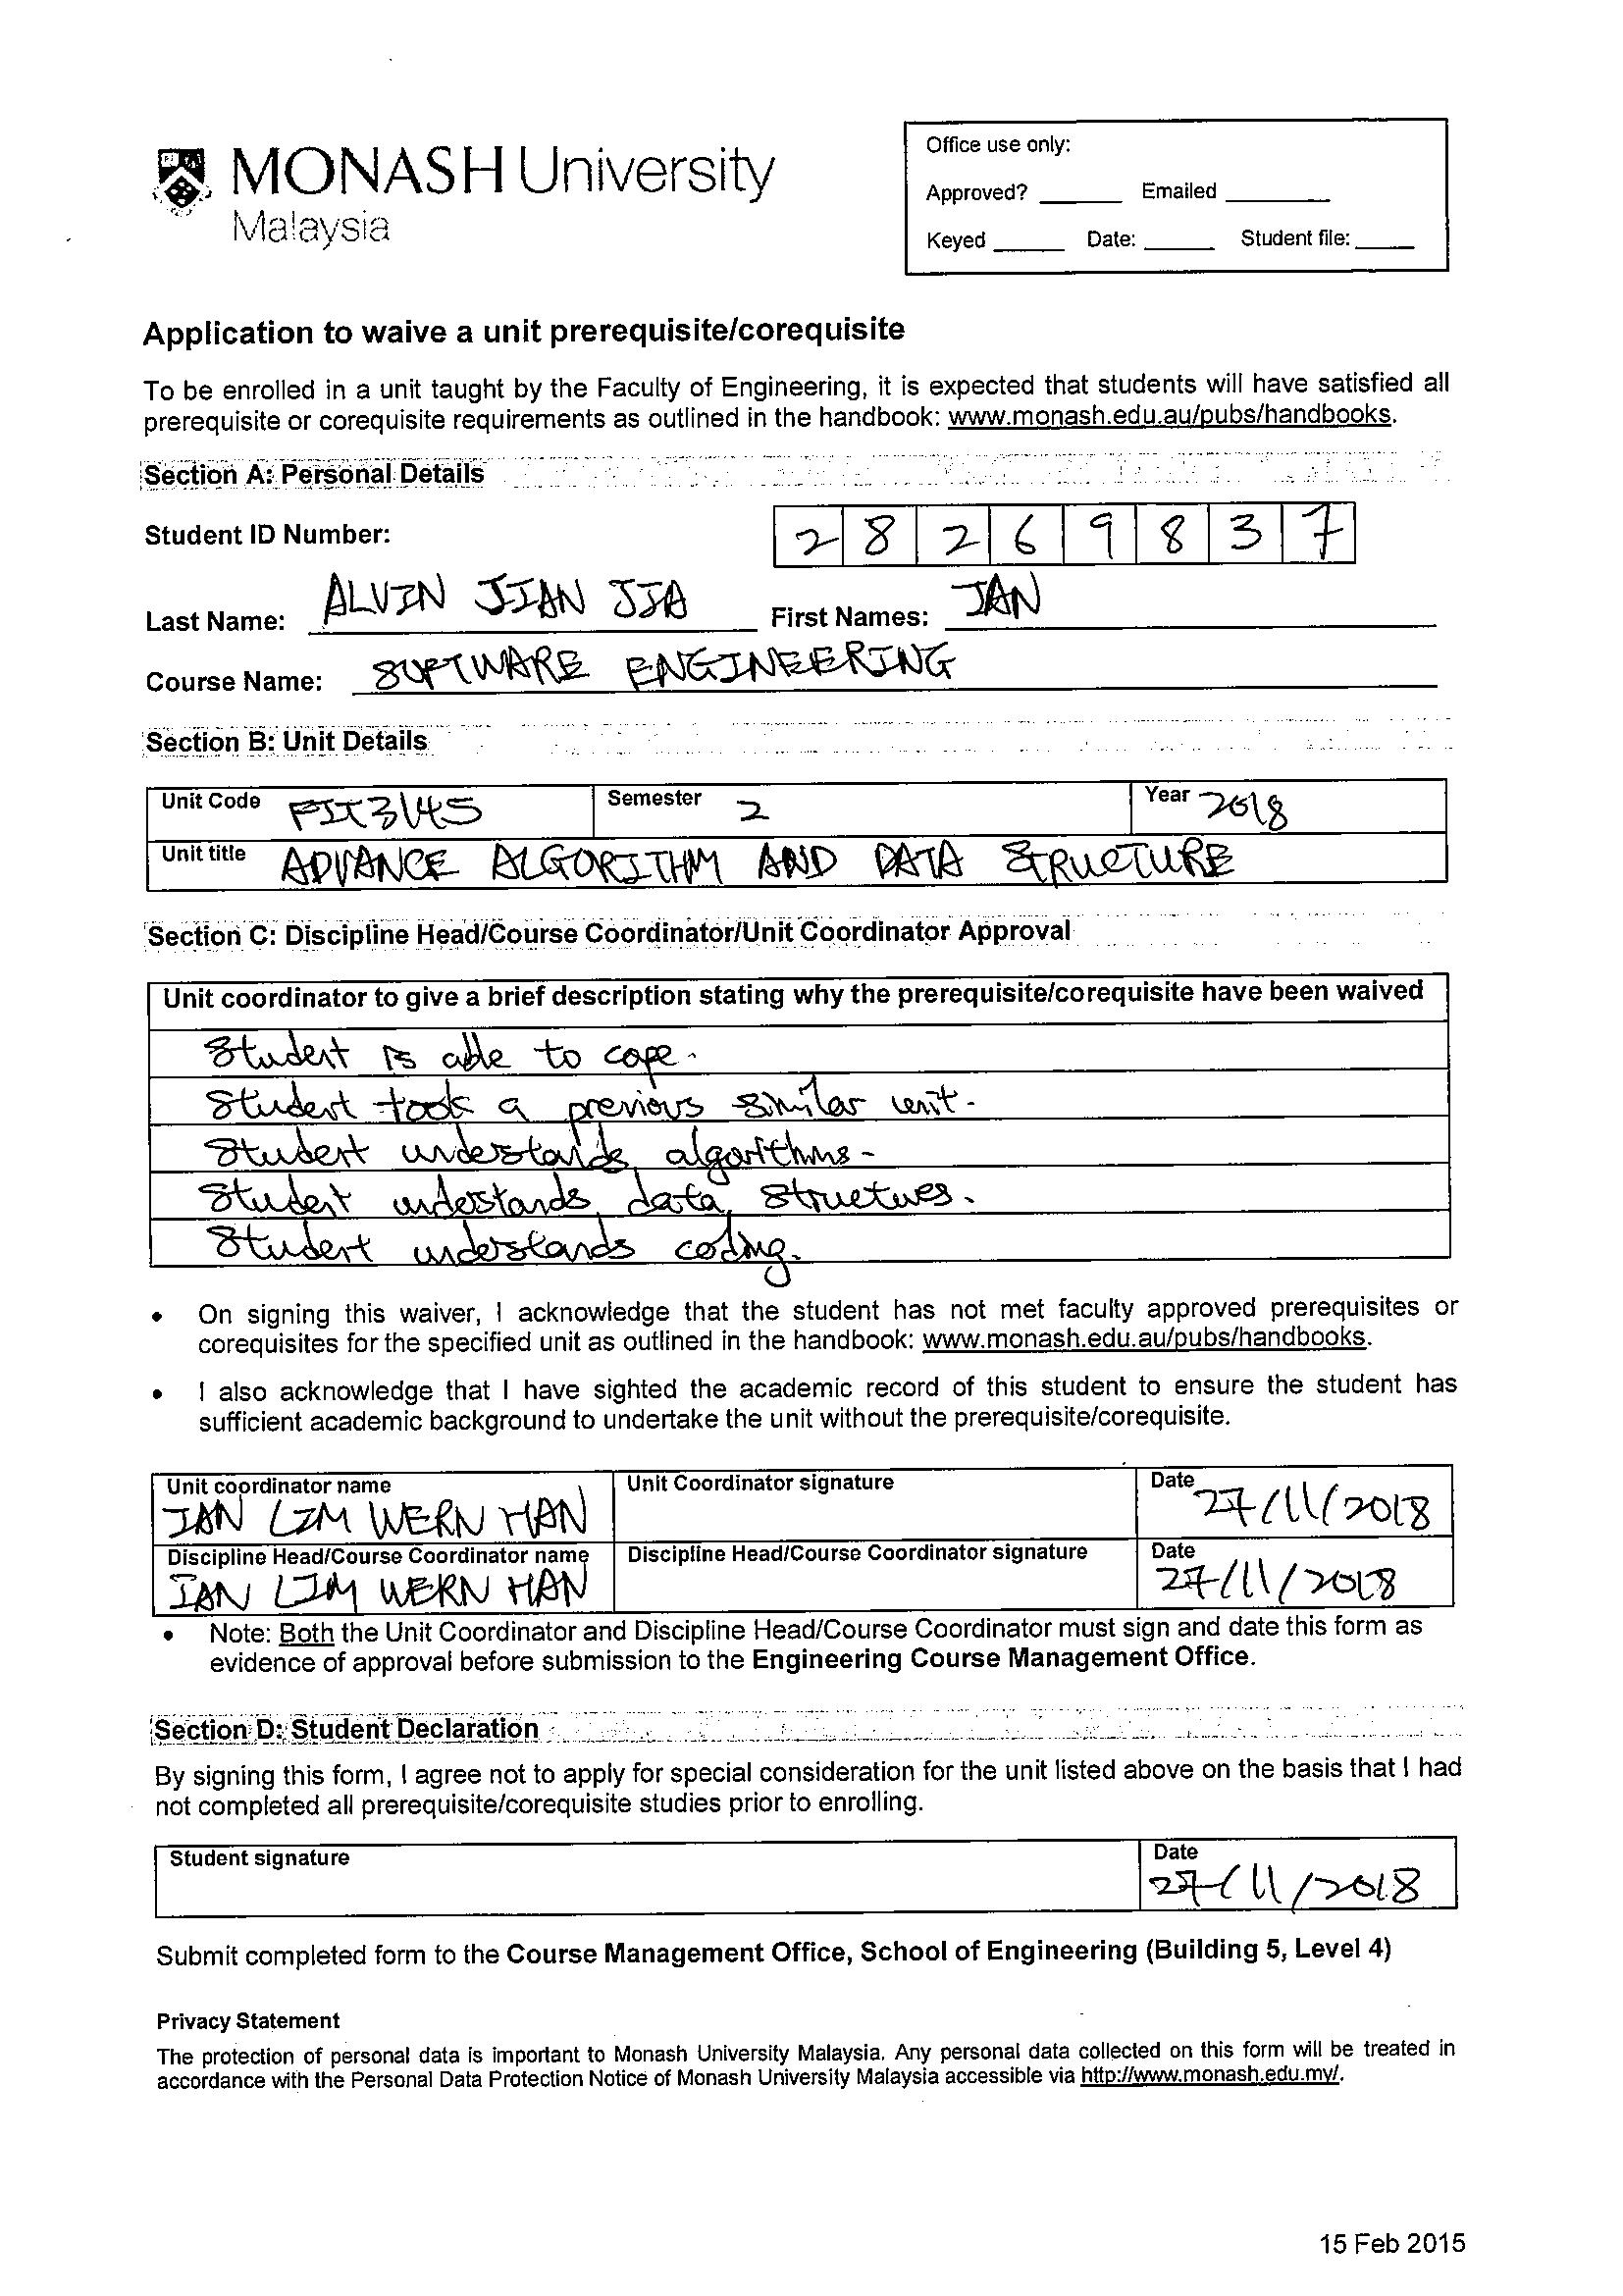 MONASH University
Malaysia
Office use only:
Approved? ______ Emailed ______
Keyed ______ Date: ______ Student file: ______
Application to waive a unit prerequisite/corequisite
To be enrolled in a unit taught by the Faculty of Engineering, it is expected that students will have satisfied all
prerequisite or corequisite requirements as outlined in the handbook: www.monash.edu.au/pubs/handbooks.
Section A: Personal Details
Student ID Number: 2 8 2 6 9 8 3 7
Last Name: ALVIN JIAN JIA First Names: JAN
Course Name: SOFTWARE ENGINEERING
Section B: Unit Details
Unit Code FIT3145 Semester 2 Year 2018
Unit title ADVANCE ALGORITHM AND DATA STRUCTURE
Section C: Discipline Head/Course Coordinator/Unit Coordinator Approval
Unit coordinator to give a brief description stating why the prerequisite/corequisite have been waived
Student is able to cope.
Student took a previous similar unit.
Student understands algorithms.
Student understands data structures.
Student understands coding.
• On signing this waiver, I acknowledge that the student has not met faculty approved prerequisites or
corequisites for the specified unit as outlined in the handbook: www.monash.edu.au/pubs/handbooks.
• I also acknowledge that I have sighted the academic record of this student to ensure the student has
sufficient academic background to undertake the unit without the prerequisite/corequisite.
Unit coordinator name Unit Coordinator signature Date
IAN LIM WERN HAN 27/11/2018
Discipline Head/Course Coordinator name Discipline Head/Course Coordinator signature Date
IAN LIM WERN HAN 27/11/2018
• Note: Both the Unit Coordinator and Discipline Head/Course Coordinator must sign and date this form as
evidence of approval before submission to the Engineering Course Management Office.
Section D: Student Declaration
By signing this form, I agree not to apply for special consideration for the unit listed above on the basis that I had
not completed all prerequisite/corequisite studies prior to enrolling.
Student signature Date
27/11/2018
Submit completed form to the Course Management Office, School of Engineering (Building 5, Level 4)
Privacy Statement
The protection of personal data is important to Monash University Malaysia. Any personal data collected on this form will be treated in
accordance with the Personal Data Protection Notice of Monash University Malaysia accessible via http://www.monash.edu.my/.
15 Feb 2015